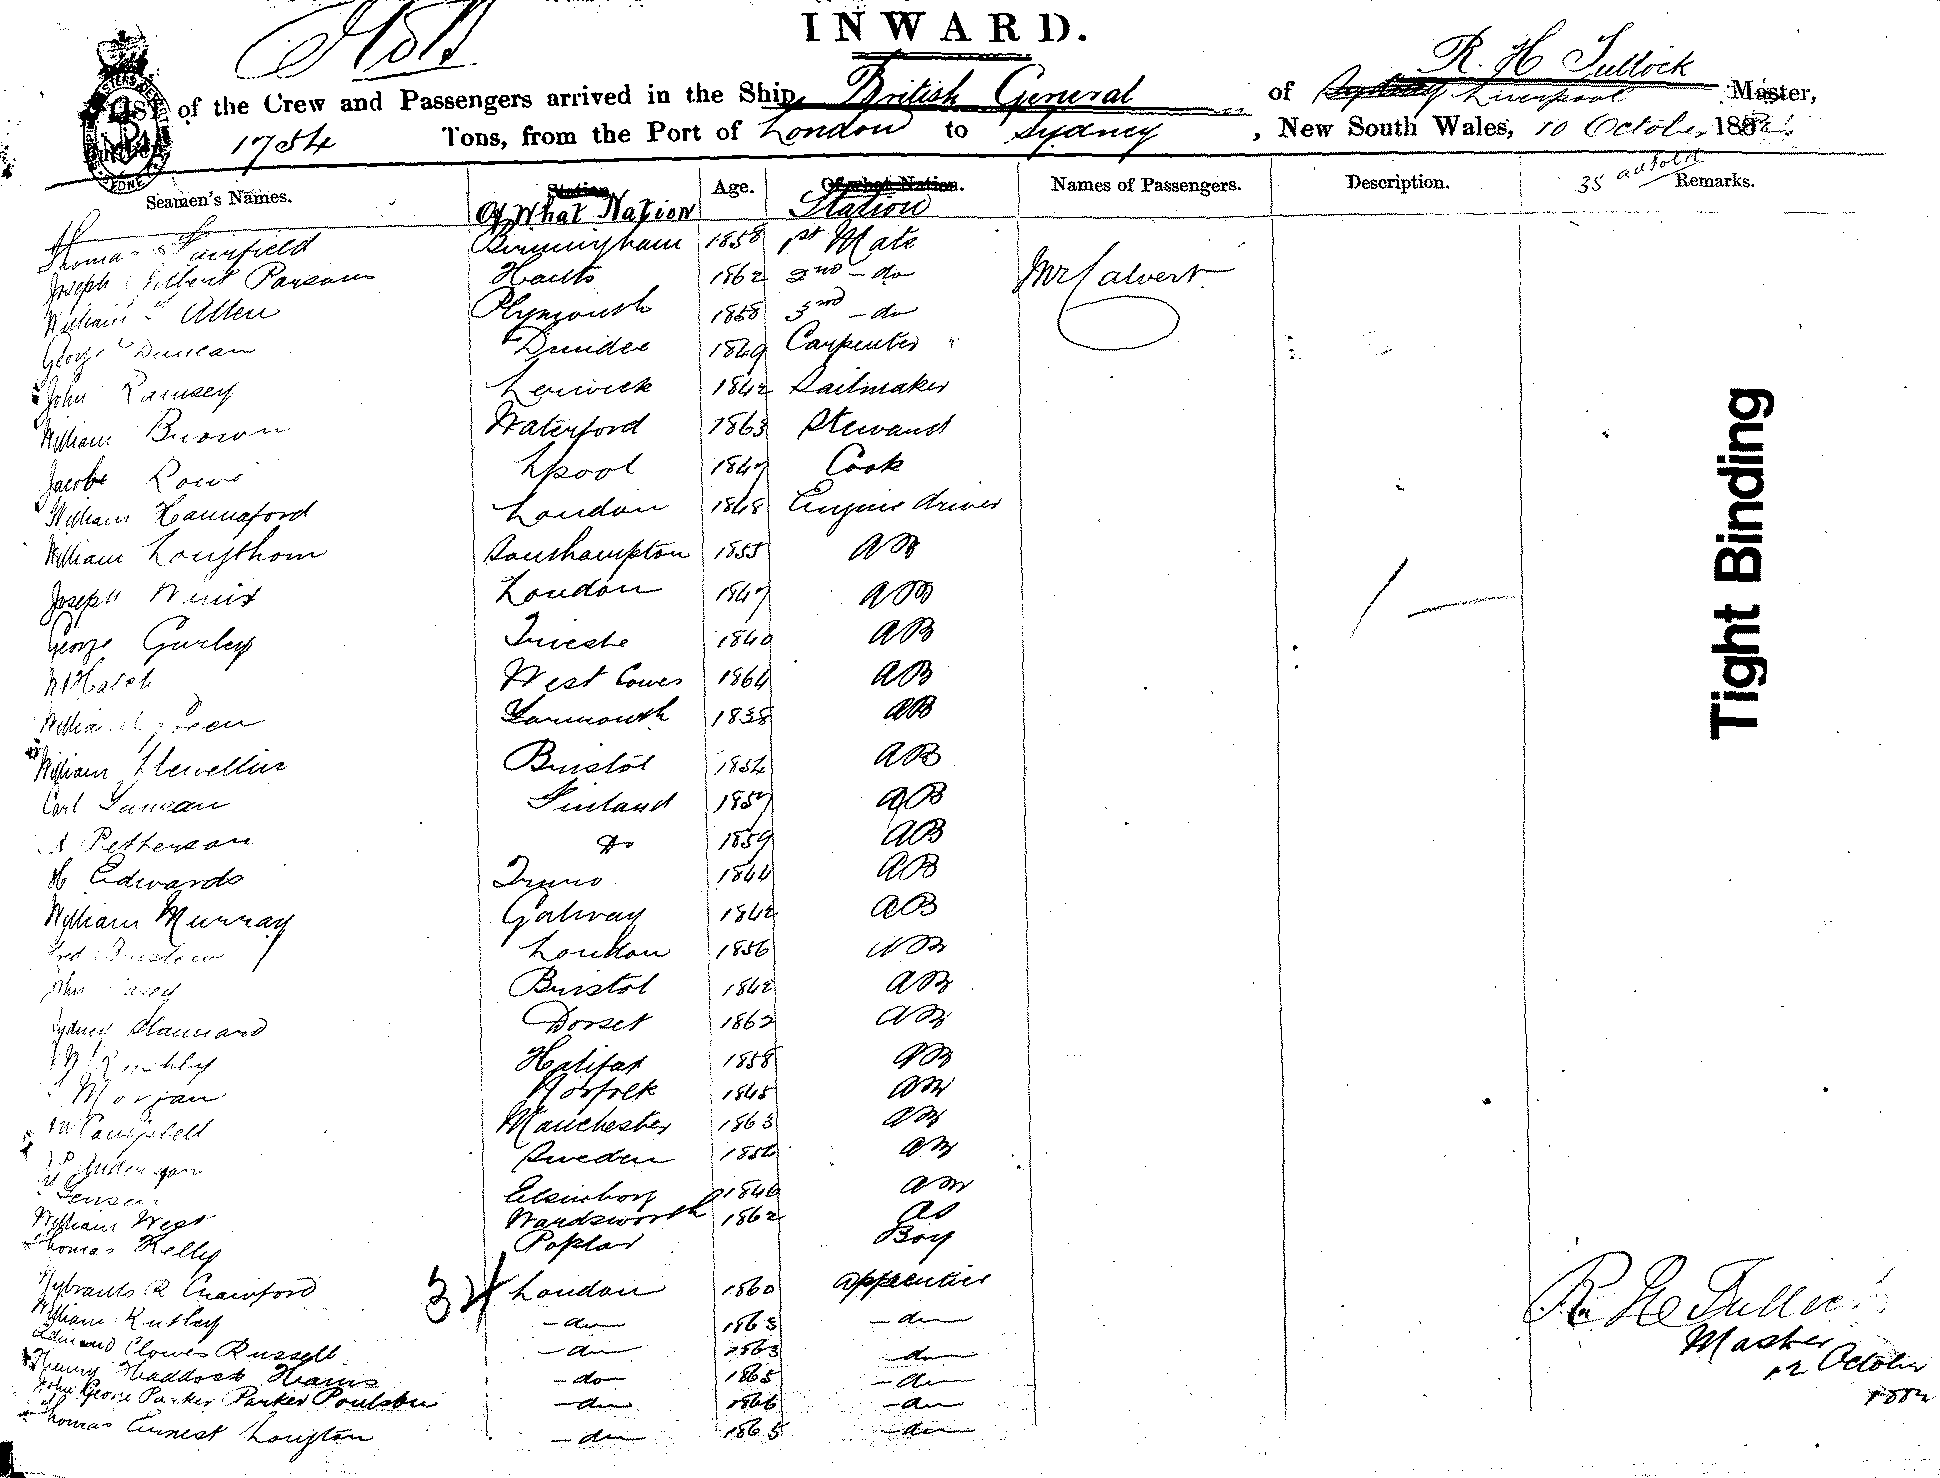 INWARD.
R. H. Tullock
LIST of the Crew and Passengers arrived in the Ship British General of Liverpool Master,
1754 Tons, from the Port of London to Sydney, New South Wales, 10 October 1882
35 all told
Seamen's Names. Station Age. Of what Nation. Names of Passengers. Description. Remarks.
Of What Nation Station
Thomas Fairfield Birmingham 1858 1st Mate
Joseph Gilbert Parsons Hants 1862 2nd - do Mr Calvert
William Allen Plymouth 1858 3rd - do
George Duncan Dundee 1849 Carpenter
John Ramsey Lerwick 1842 Sailmaker
William Brown Waterford 1863 Steward
Jacobe Rowe Lpool 1847 Cook
William Hannaford London 1848 Engine driver
William Longthorn Southampton 1855 AB
Joseph London 1847 AB
George Gurley Trieste 1840 AB
Hatch West Cowes 1864 AB
William Green Yarmouth 1838 AB
William Llewellin Bristol 1854 AB
Carl Finland 1857 AB
Petterson Do 1859 AB
H Edwards Truro 1844 AB
William Murray Galway 1842 AB
Fred London 1856 AB
John Casey Bristol 1842 AB
Sydney Dorset 1862 AB
Halifax 1858 AB
Morgan Norfolk 1845 AB
Campbell Manchester 1863 AB
Sweden 1856 AB
Jensen 1846 AB
William West Wandsworth 1862 OS
Thomas Kelly Poplar Boy
Sybrants R Crawford 34 London 1860 apprentice
William Rutley - do 1863 - do
Edmund Clowes Russell - do 1863 - do
Henry Haddock Hams - do 1865 - do
John George Parker Parker Poulston - do 1866 - do
Thomas Ernest Longton - do 1865 - do
R H Tullock
Master
12 October
1882
Tight Binding